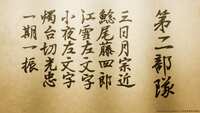 第二部隊
三日月宗近
鯰尾藤四郎
江雪左文字
小夜左文字
燭台切光忠
一期一振